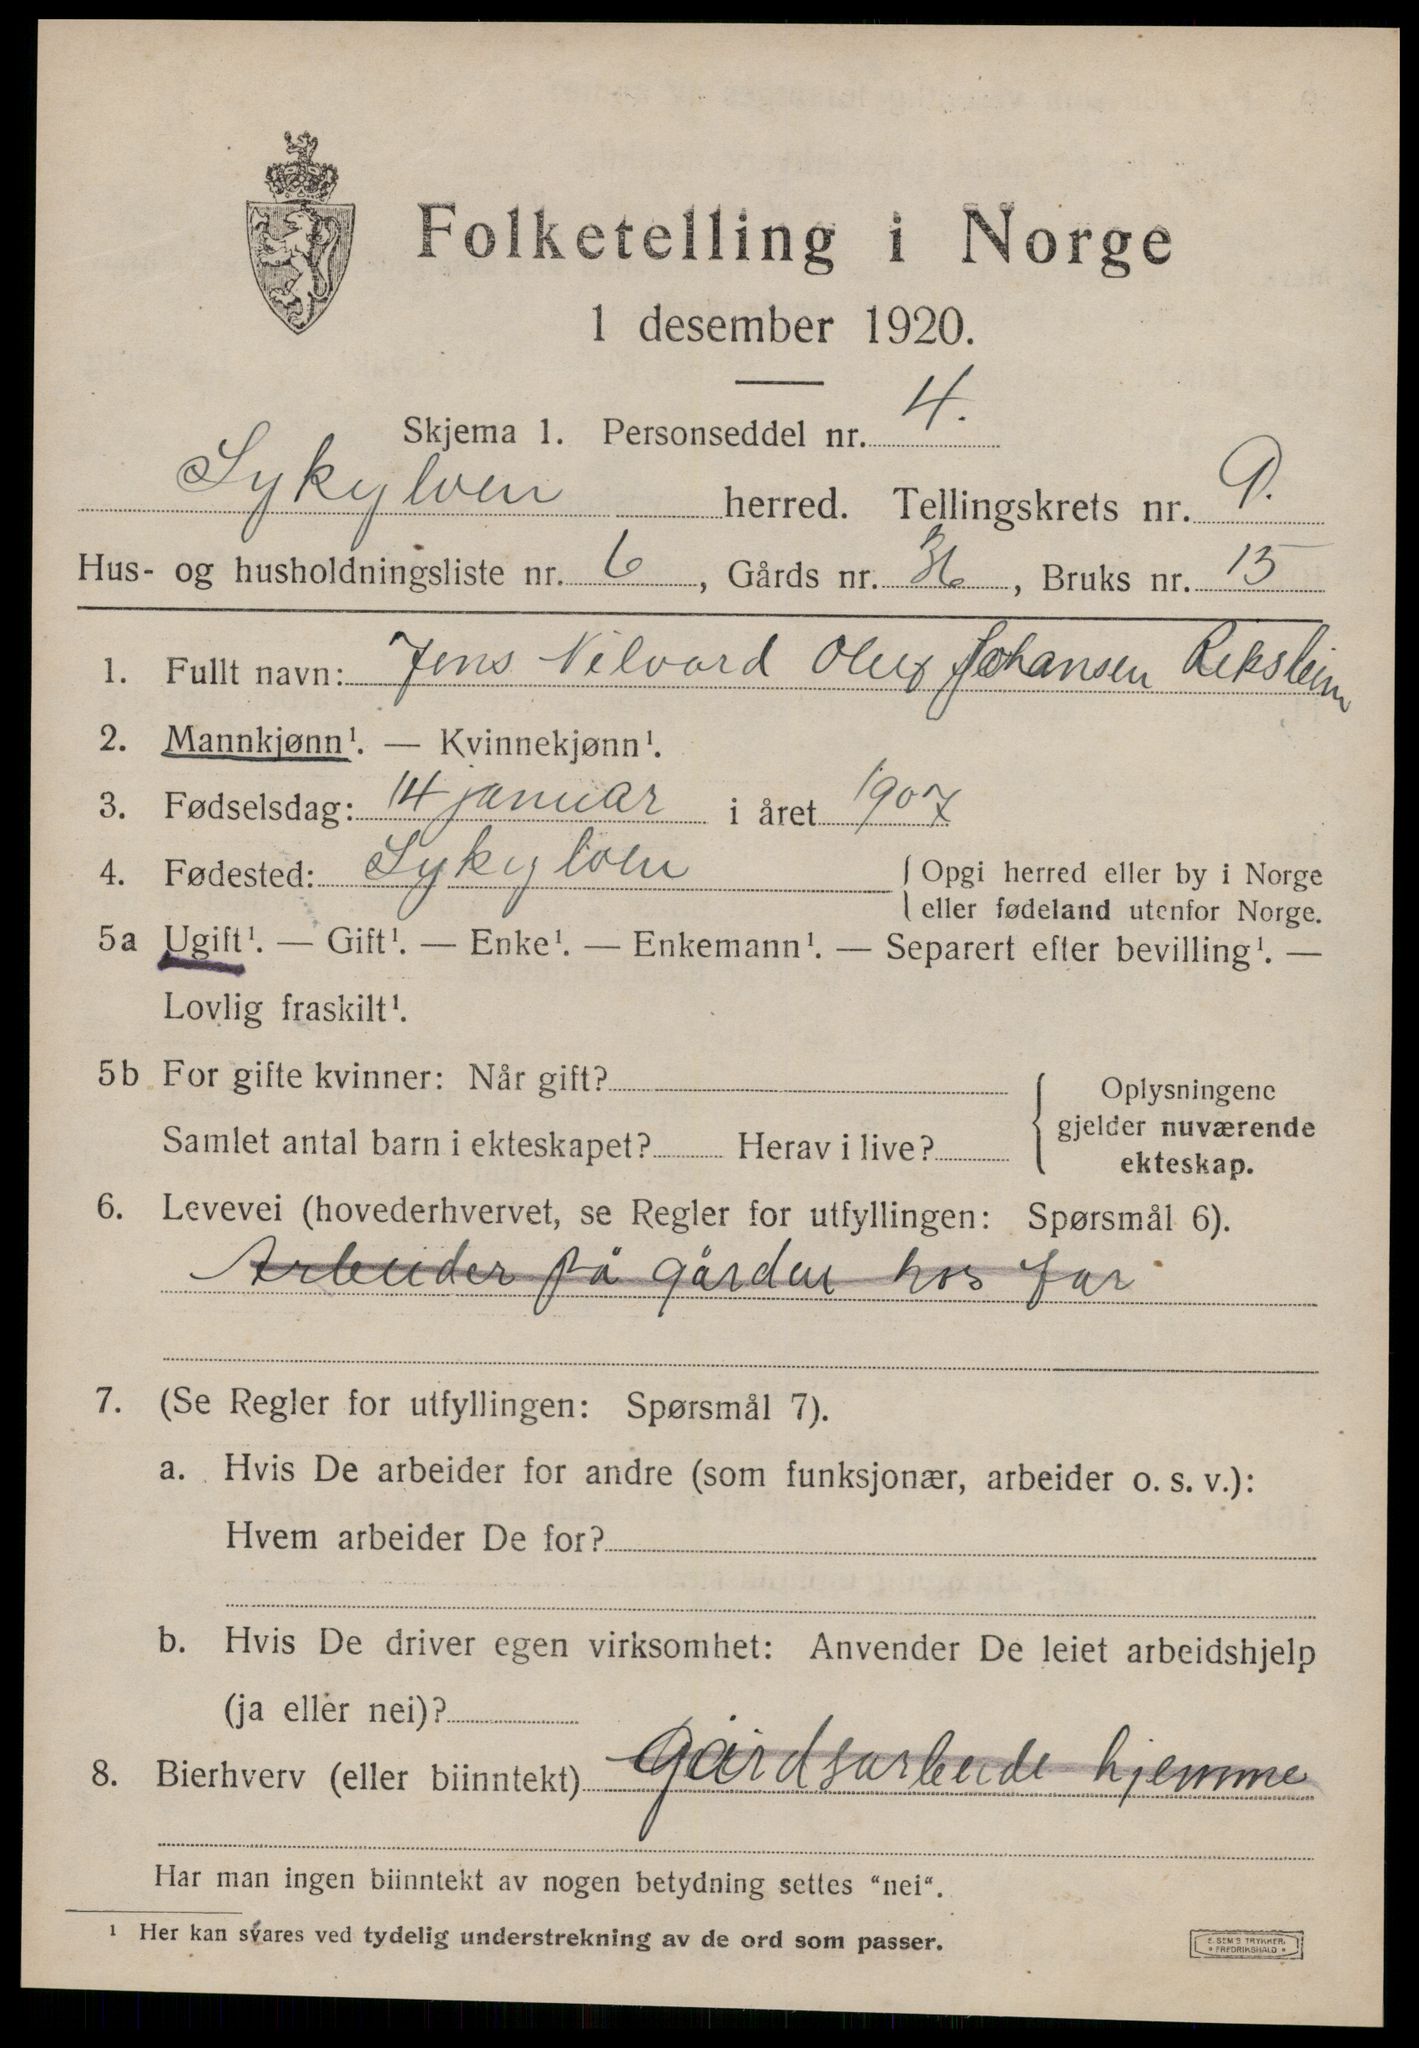 Folketelling i Norge
1 desember 1920.
Skjema 1. Personseddel nr. 4.
Sykylven herred. Tellingskrets nr. 9.
Hus- og husholdningsliste nr. 6, Gårds nr. 36, Bruks nr. 15
1. Fullt navn: Jens Nilvard Oluf Johansen Riksheim
2. Mannkjønn¹. — Kvinnekjønn¹.
3. Fødselsdag: 14 januar i året 1907
4. Fødested: Sykylven { Opgi herred eller by i Norge
eller fødeland utenfor Norge.
5a Ugift¹. — Gift¹. — Enke¹. — Enkemann¹. — Separert efter bevilling¹. —
Lovlig fraskilt¹.
5b For gifte kvinner: Når gift? { Oplysningene
gjelder nuværende
Samlet antal barn i ekteskapet? Herav i live?
ekteskap.
6. Levevei (hovederhvervet, se Regler for utfyllingen: Spørsmål 6).
Arbeider på gården hos far
7. (Se Regler for utfyllingen: Spørsmål 7).
a. Hvis De arbeider for andre (som funksjonær, arbeider o. s. v.):
Hvem arbeider De for?
b. Hvis De driver egen virksomhet: Anvender De leiet arbeidshjelp
(ja eller nei)?
8. Bierhverv (eller biinntekt) Gårdsarbeide hjemme
Har man ingen biinntekt av nogen betydning settes "nei".
¹ Her kan svares ved tydelig understrekning av de ord som passer.
E. SEM'S TRYKKERI
* FREDRIKSHALD *